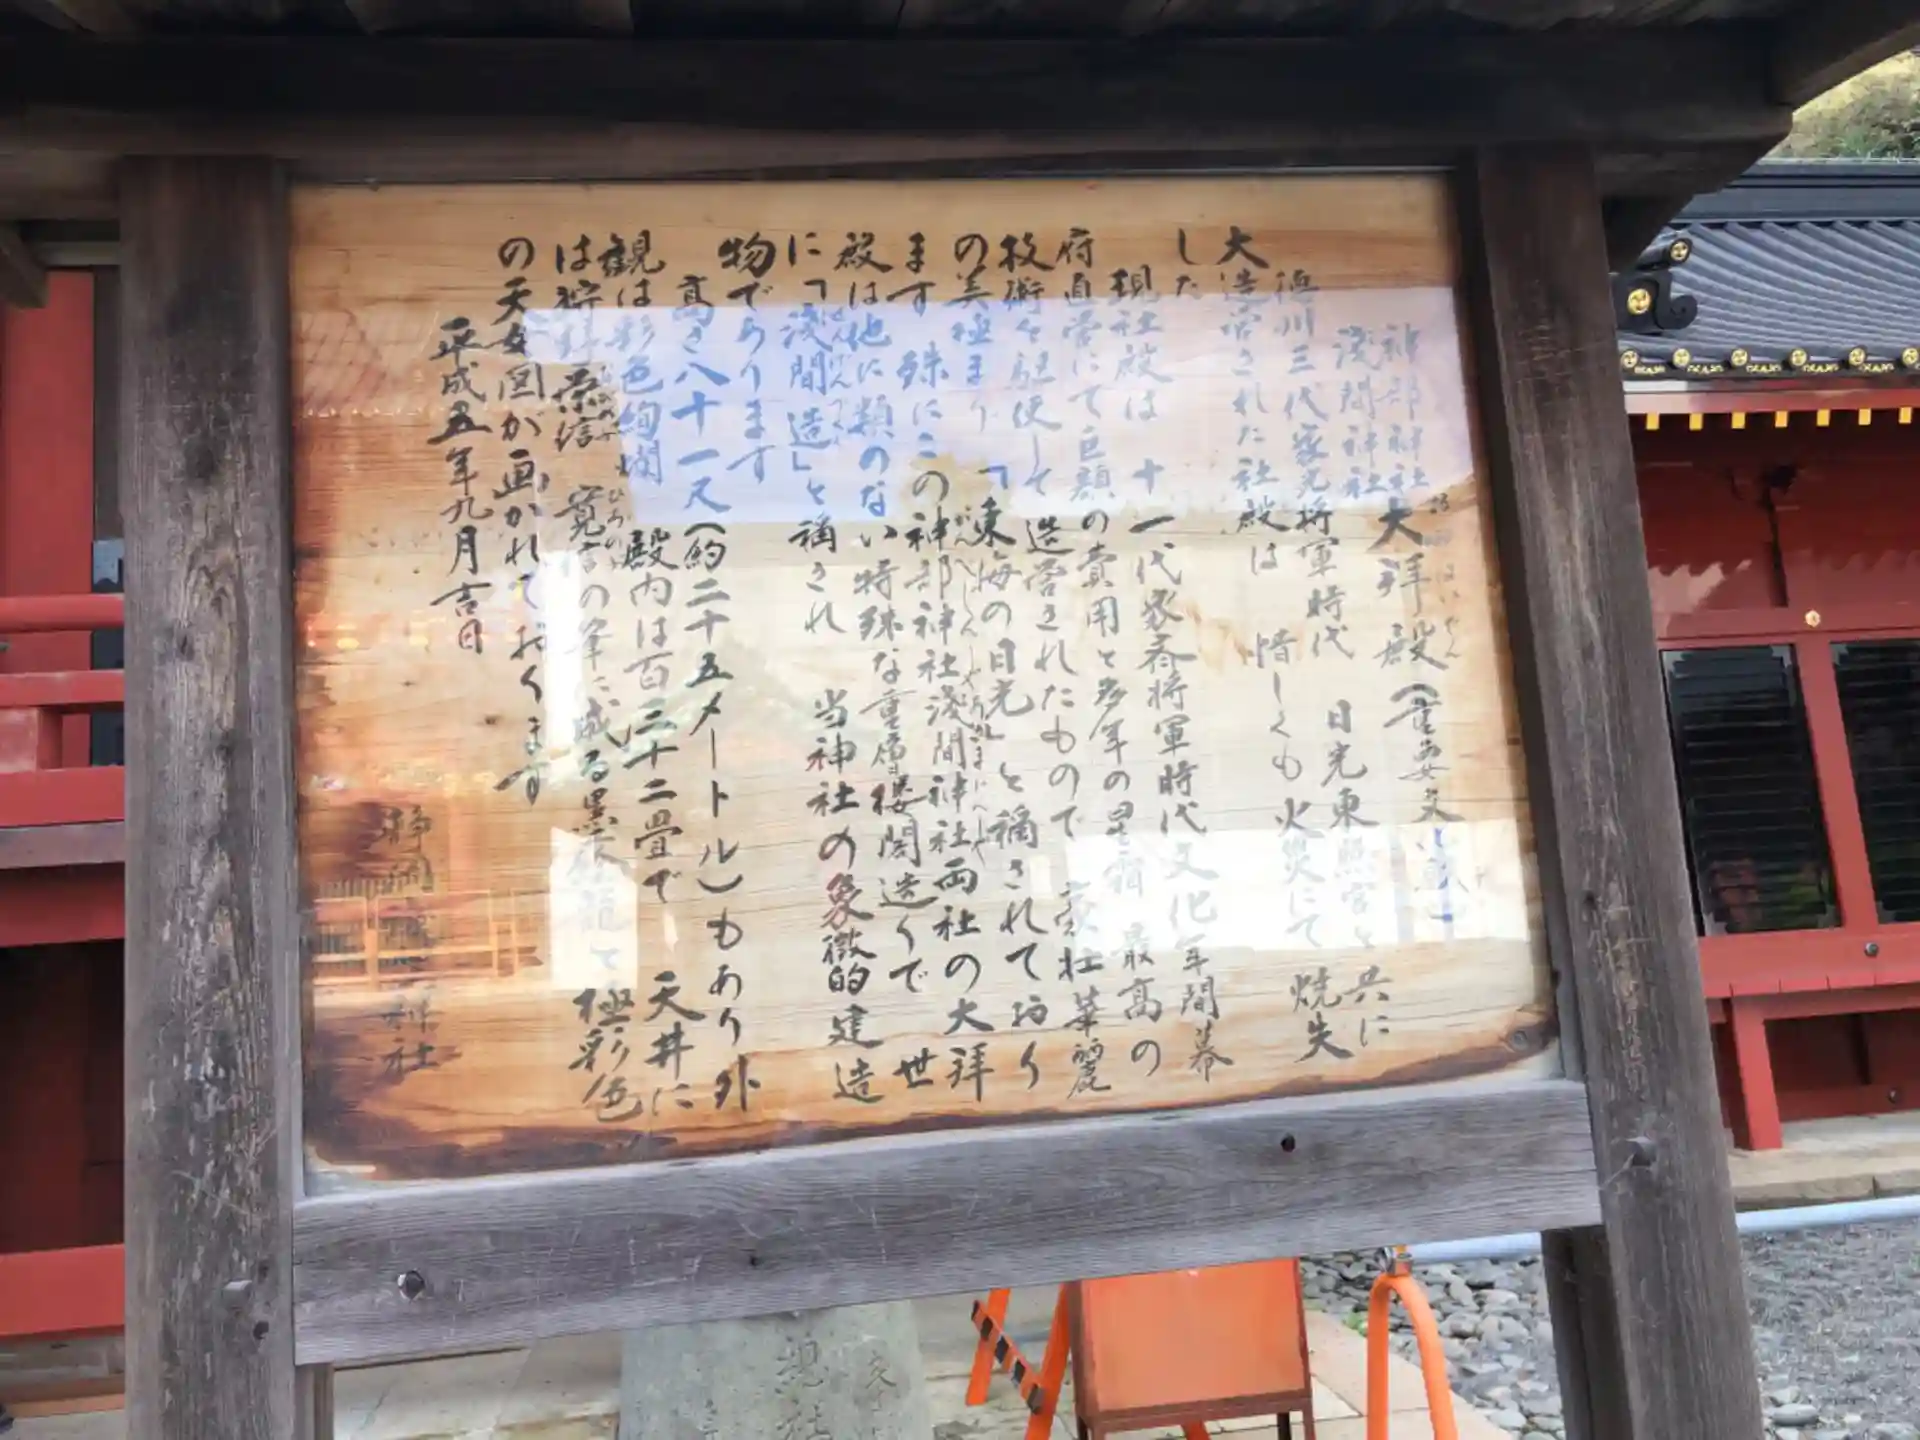 神部神社
浅間神社
大拝殿(重要文化財)
徳川三代家光将軍時代 日光東照宮と共に
大造営された社殿は 惜しくも火災にて焼失
した
現社殿は 十一代家斉将軍時代文化年間幕
府直営にて巨額の費用と多年の星霜 最高の
技術を駆使して造営されたもので 豪壮華麗
の美極まり 「東海の日光」と称されており
ます 殊にこの神部神社浅間神社両社の大拝
殿は他に類のない特殊な重層楼閣造りで 世
に「浅間造」と称され 当神社の象徴的建造
物であります
高さ八十一尺(約二十五メートル)もあり外
観は彩色絢爛 殿内は百三十二畳で 天井に
は狩野榮信 寛信の筆に成る墨 龍と極彩色
の天女図が画かれております
平成五年九月吉日
静岡 神社